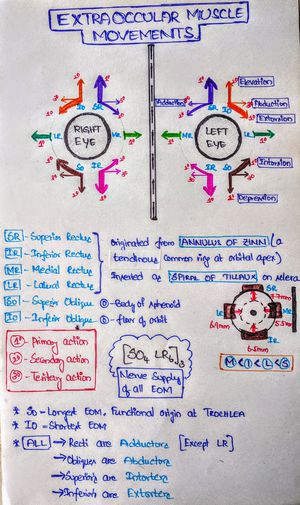 EXTRAOCCULAR MUSCLE
MOVEMENTS
1° 1° Elevation
IO SR SR IO
Adduction Abduction
Extorsion
LR RIGHT EYE MR MR LEFT EYE LR
SO IR IR SO
Intorsion
Depression
SR - Superior Rectus
IR - Inferior Rectus
MR - Medial Rectus
LR - Lateral Rectus
SO - Superior Oblique
IO - Inferior Oblique
originated from ANNULUS OF ZINN (a
tendinous common ring at orbital apex)
Inserted as SPIRAL OF TILLAUX on sclera
O - Body of sphenoid
O - floor of orbit
SR
7.7mm
6.9mm
5.5mm
6.5mm
IR
M < I < L < S
1° - Primary action
2° - Secondary action
3° - Tertiary action
[SO4 LR6]3
Nerve Supply
of all EOM
* SO = Longest EOM, Functional origin at TROCHLEA
* IO = Shortest EOM
* ALL → Recti are Adductors [Except LR]
→ Obliques are Abductors
→ Superiors are Intorters
→ Inferiors are Extorters